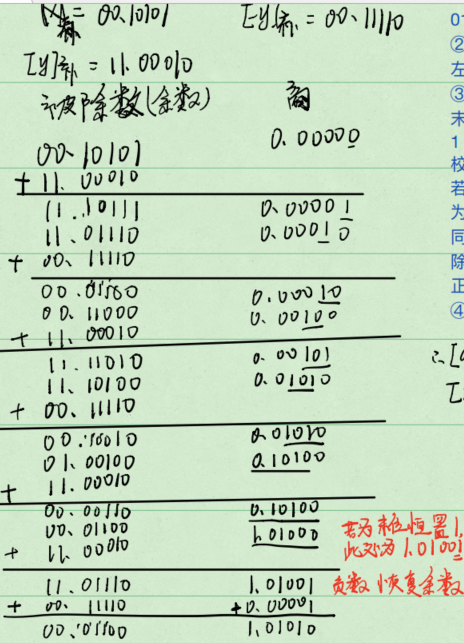 [x]补 = 00.10101 [y]补 = 00.11110
[y]补 = 11.00010
被除数(余数) 商
00.10101 0.00000
+ 11.00010
11.10111 0.00001
11.01110 0.00010
+ 00.11110
00.01100 0.00010
00.11000 0.00100
+ 11.00010
11.11010 0.00101
11.10100 0.01010
+ 00.11110
00.10010 0.01010
01.00100 0.10100
+ 11.00010
00.00110 0.10100
00.01100 1.01000
+ 11.00010
若为末位恒置1,
此处为 1.01001
11.01110 1.01001 负数 恢复余数
+ 00.11110 +0.00001
00.01100 1.01010
01
②
左
③
末
1
校
若
为
同
除
正
④
∴[
[